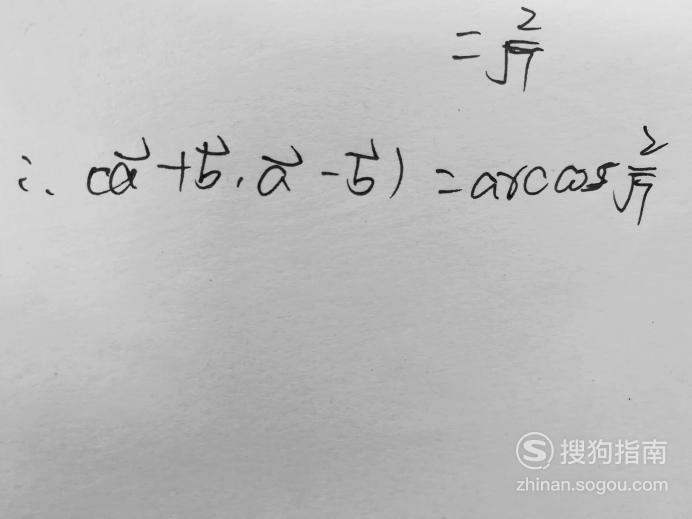 = 2/√7
∴ (a⃗+b⃗, a⃗-b⃗) = arccos 2/√7
搜狗指南
zhinan.sogou.com